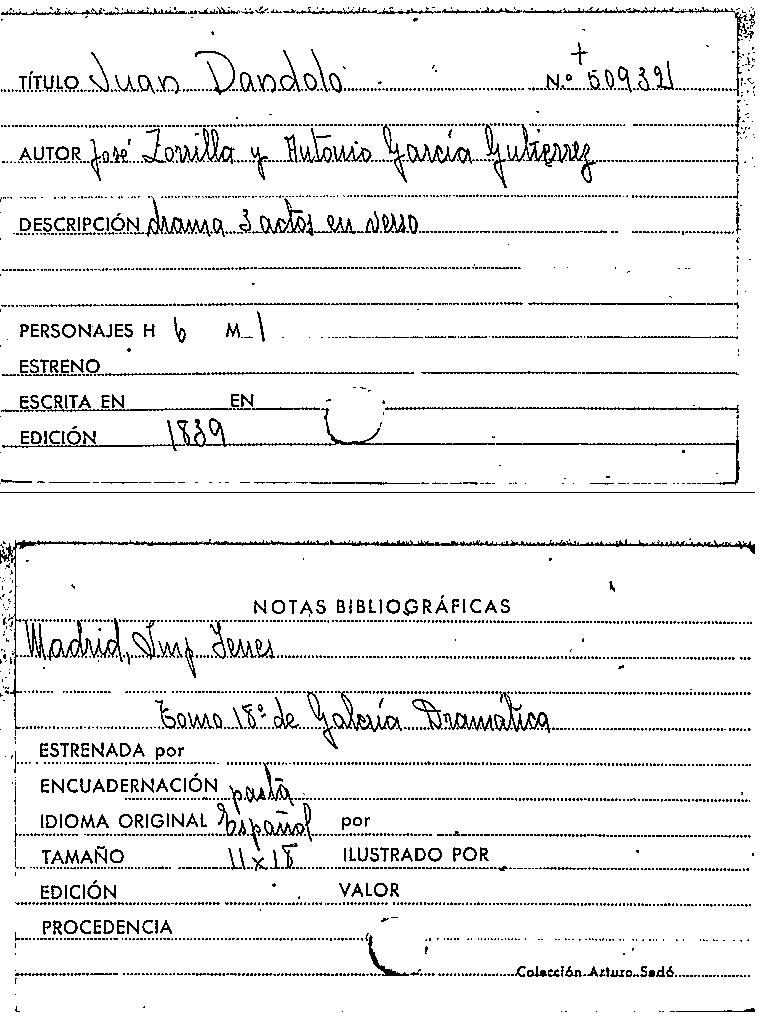 TÍTULO Juan Dandolo N.º 509321
AUTOR José Zorrilla y Antonio García Gutiérrez
DESCRIPCIÓN drama 3 actos en verso
PERSONAJES H 6 M 1
ESTRENO
ESCRITA EN EN
EDICIÓN 1839
NOTAS BIBLIOGRÁFICAS
Madrid, Imp Yenes
Tomo 18º de Galería Dramática
ESTRENADA por
ENCUADERNACIÓN pasta
IDIOMA ORIGINAL Español por
TAMAÑO 11 x 18 ILUSTRADO POR
EDICIÓN VALOR
PROCEDENCIA
Colección Arturo Sedó